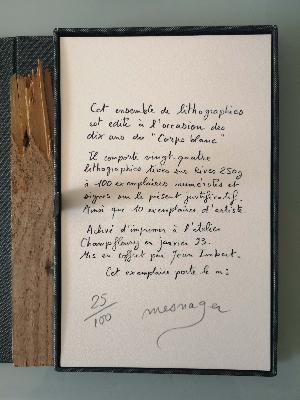 Cet ensemble de lithographies
est édité à l'occasion des
dix ans du "Corps blanc"
Il comporte vingt-quatre
lithographies tirées sur Rives 250g
à 100 exemplaires numérotés et
signés sur le présent justificatif.
Ainsi que 10 exemplaires d'artiste
Achevé d'imprimer à l'atelier
Champfleury en janvier 93.
Mis en coffret par Jean Limbert.
Cet exemplaire porte le n:
25/100
mesnager